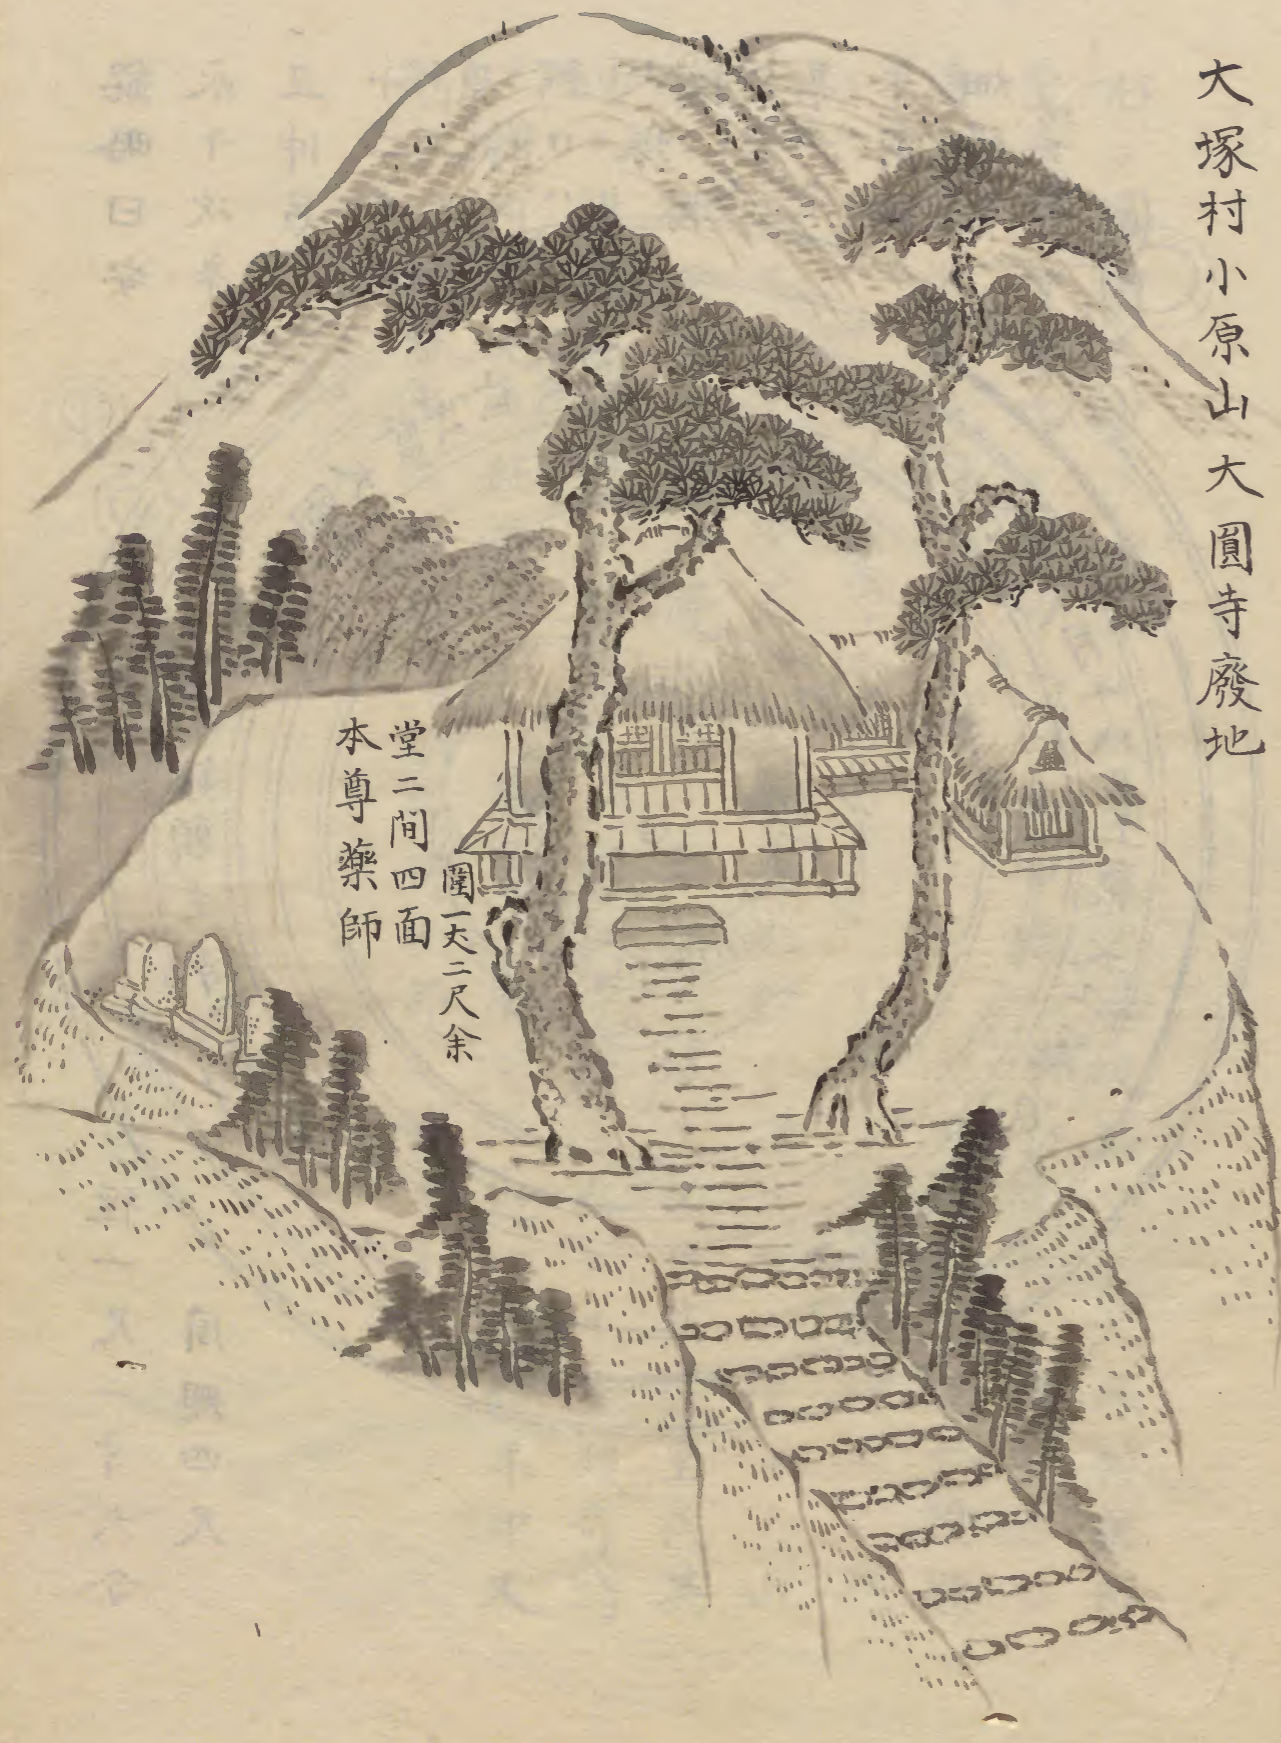 大塚村小原山大圓寺廢地
圍一丈二尺余
堂二間四面
本尊藥師